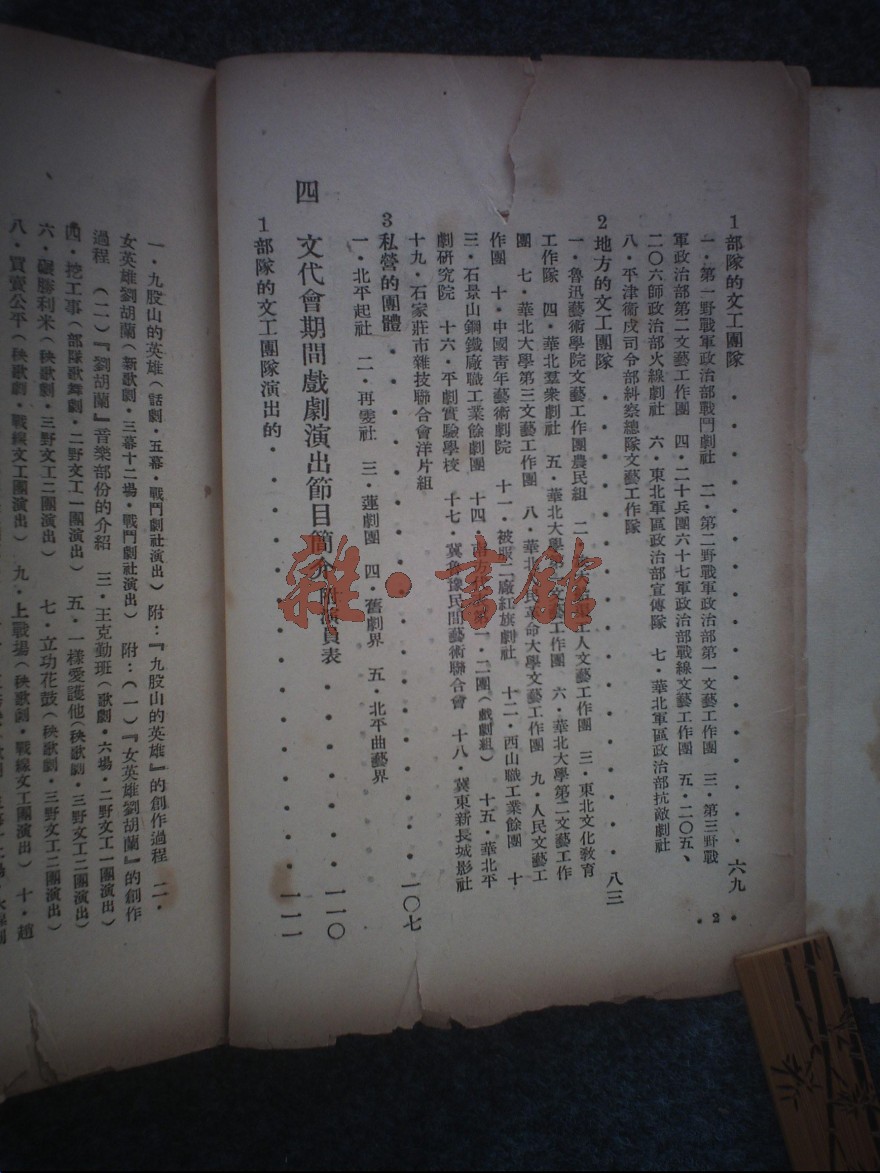 1部隊的文工團隊・・・・・・・・・・・・六九
一・第一野戰軍政治部戰鬥劇社 二・第二野戰軍政治部第一文藝工作團 三・第三野戰
軍政治部第二文藝工作團 四・二十兵團六十七軍政治部戰線文藝工作團 五・二〇五、
二〇六師政治部火線劇社 六・東北軍區政治部宣傳隊 七・華北軍區政治部抗敵劇社
八・平津衞戍司令部糾察總隊文藝工作隊
2地方的文工團隊・・・・・・・・・・・・八三
一・魯迅藝術學院文藝工作團農民組 二・工人文藝工作團 三・東北文化教育
工作隊 四・華北羣衆劇社 五・華北大學第一文藝工作團 六・華北大學第二文藝工作
團 七・華北大學第三文藝工作團 八・華北人民革命大學文藝工作團 九・人民文藝工
作團 十・中國靑年藝術劇院 十一・被服二廠紅旗劇社 十二・西山職工業餘團 十
三・石景山鋼鐵廠職工業餘劇團 十四・第一・二團(戲劇組) 十五・華北平
劇研究院 十六・平劇實驗學校 十七・冀魯豫民間藝術聯合會 十八・冀東新長城影社
十九・石家莊市雜技聯合會洋片組
3私營的團體・・・・・・・・・・・・一〇七
一・北平起社 二・再雯社 三・蓮劇團 四・舊劇界 五・北平曲藝界
四 文代會期間戲劇演出節目簡介附演員表・・・・・・一一〇
1部隊的文工團隊演出的・・・・・・・・・・・・一一一
・2・
一・九股山的英雄(話劇・五幕・戰鬥劇社演出) 附:『九股山的英雄』的創作過程 二・
女英雄劉胡蘭(新歌劇・三幕十二場・戰鬥劇社演出) 附:(一)『女英雄劉胡蘭』的創作
過程 (二)『劉胡蘭』音樂部份的介紹 三・王克勤班(歌劇・六場・二野文工一團演出)
四・挖工事(部隊歌舞劇・二野文工一團演出) 五・一樣愛護他(秧歌劇・三野文工二團演出)
六・碾勝利米(秧歌劇・三野文工二團演出) 七・立功花鼓(秧歌劇・三野文工二團演出)
八・買賣公平(秧歌劇・戰線文工團演出) 九・上戰場(秧歌劇・戰線文工團演出) 十・趙
雜・書館